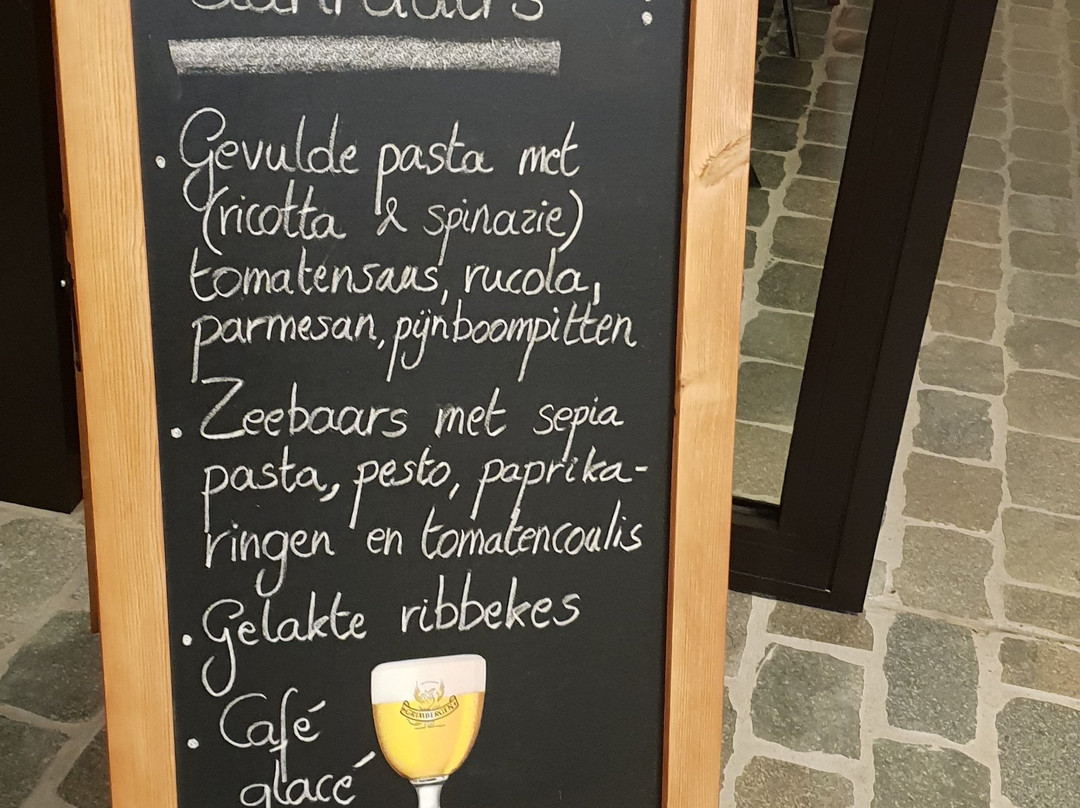 . Gevulde pasta met
(ricotta & spinazie)
tomatensaus, rucola,
parmesan, pijnboompitten
. Zeebaars met sepia
pasta, pesto, paprika-
ringen en tomatencoulis
. Gelakte ribbekes
. Café
glacé
GRIMBERGEN